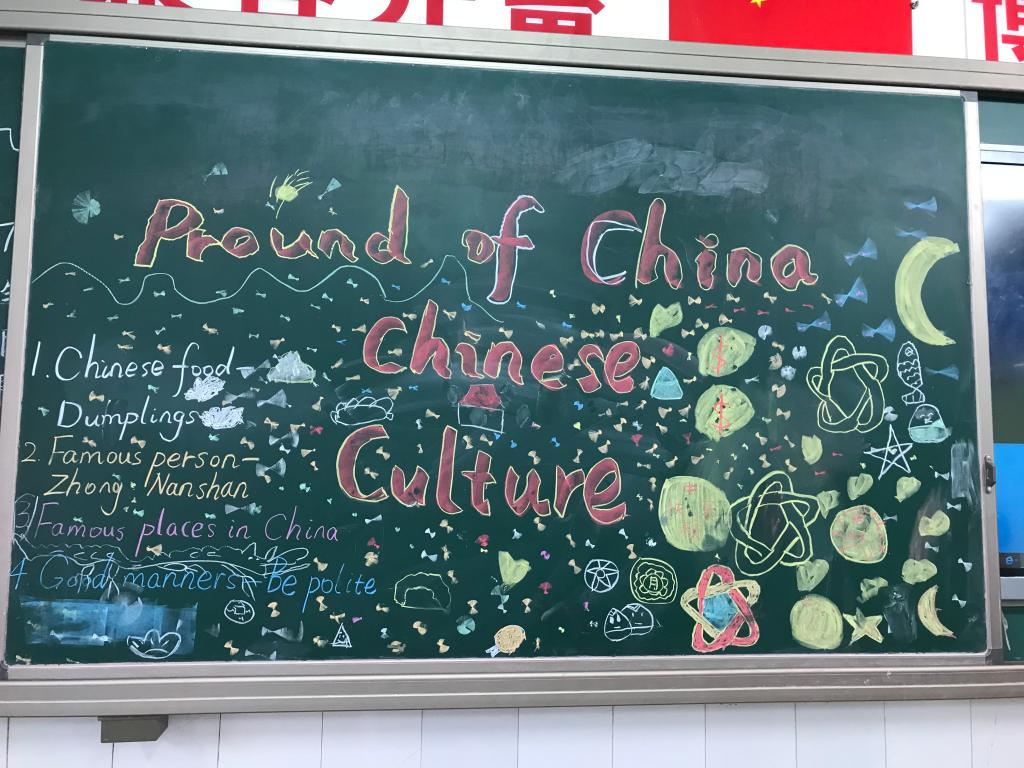 Pround of China
Chinese
Culture
1. Chinese food-
Dumplings
2. Famous person-
Zhong Nanshan
3) Famous places in China
4. Good manners-Be polite